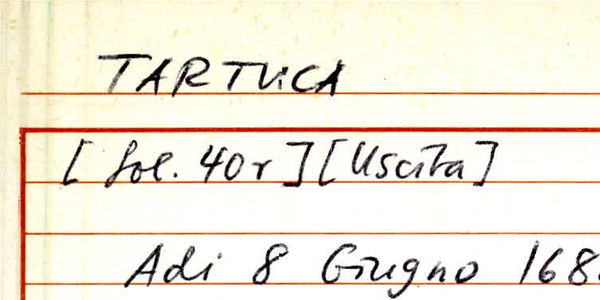 TARTUCA
[fol. 40r] [Uscita]
Adi 8 Giugno 168